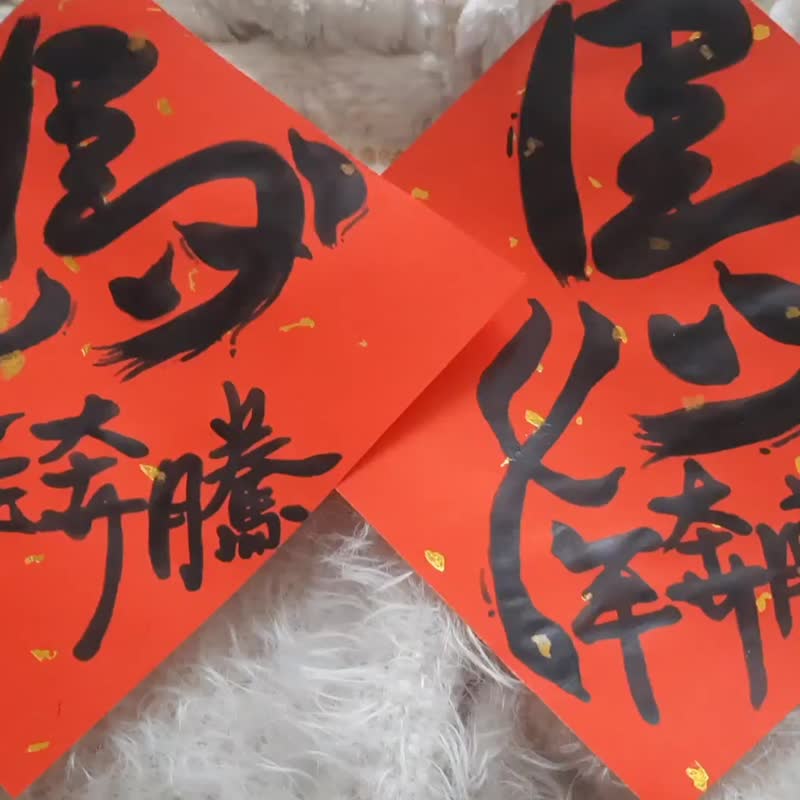 馬
奔騰
馬
年奔